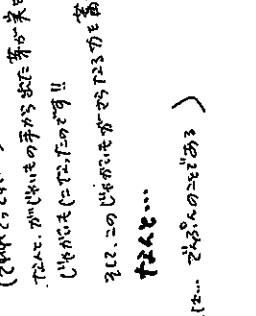 なんと、がじゃいもの手から出た芽が実
じゃがいもになったのです!!
そして、このじゃがいもがさらなる力を蓄
なんと…
は… でんぷんのことである )